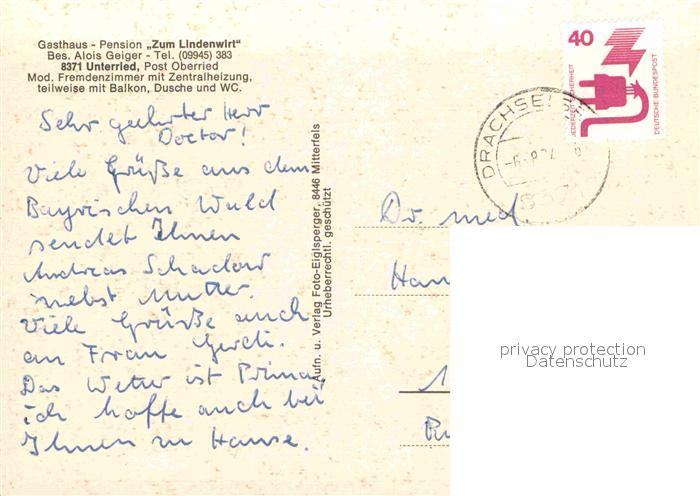 Gasthaus - Pension „Zum Lindenwirt"
Bes. Alois Geiger - Tel. (09945) 383
8371 Unterried, Post Oberried
Mod. Fremdenzimmer mit Zentralheizung,
teilweise mit Balkon, Dusche und WC.
Sehr geehrter Herr
Doctor!
Viele Grüße aus dem
Bayrischen Wald
sendet Ihnen
Andreas Schadow
nebst Mutter.
Viele Grüße auch
an Frau Gerdi.
Das Wetter ist Prima,
ich hoffe auch bei
Ihnen zu Hause.
Aufn. u. Verlag Foto-Eiglsperger, 8446 Mitterfels
Urheberrechtl. geschützt
40
JEDERZEIT SICHERHEIT
DEUTSCHE BUNDESPOST
DRACHSEL
Dr. med.
Han
1
privacy protection
Datenschutz